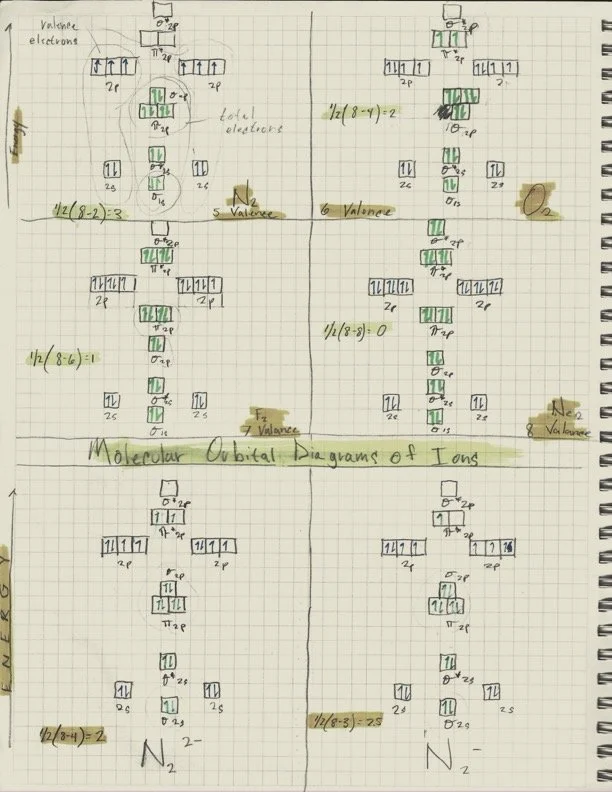 valence
electrons
σ*2p
π*2p
2p
2p
σ2p
π2p
total
electrons
σ*2s
2s
2s
σ1s
1/2(8-2)=3
N2
5 Valence
Energy
σ*2p
π*2p
2p
2
1/2(8-4)=2
σ2p
σ*2s
2s
2s
σ1s
6 Valence
O2
σ*2p
π*2p
2p
2p
π2p
1/2(8-6)=1
σ2p
σ*2s
2s
2s
σ1s
F2
7 Valance
σ*2p
π*2p
2p
2p
1/2(8-8)=0
π2p
σ2p
σ*2s
2s
2s
σ1s
Ne2
8 Valance
Molecular Orbital Diagrams of Ions
ENERGY
σ*2p
π*2p
2p
2p
σ2p
π2p
σ*2s
2s
2s
σ2s
1/2(8-4)=2
N2 2-
σ*2p
π*2p
2p
2p
σ2p
π2p
σ*2s
2s
2s
σ2s
1/2(8-3)=25
N2 -